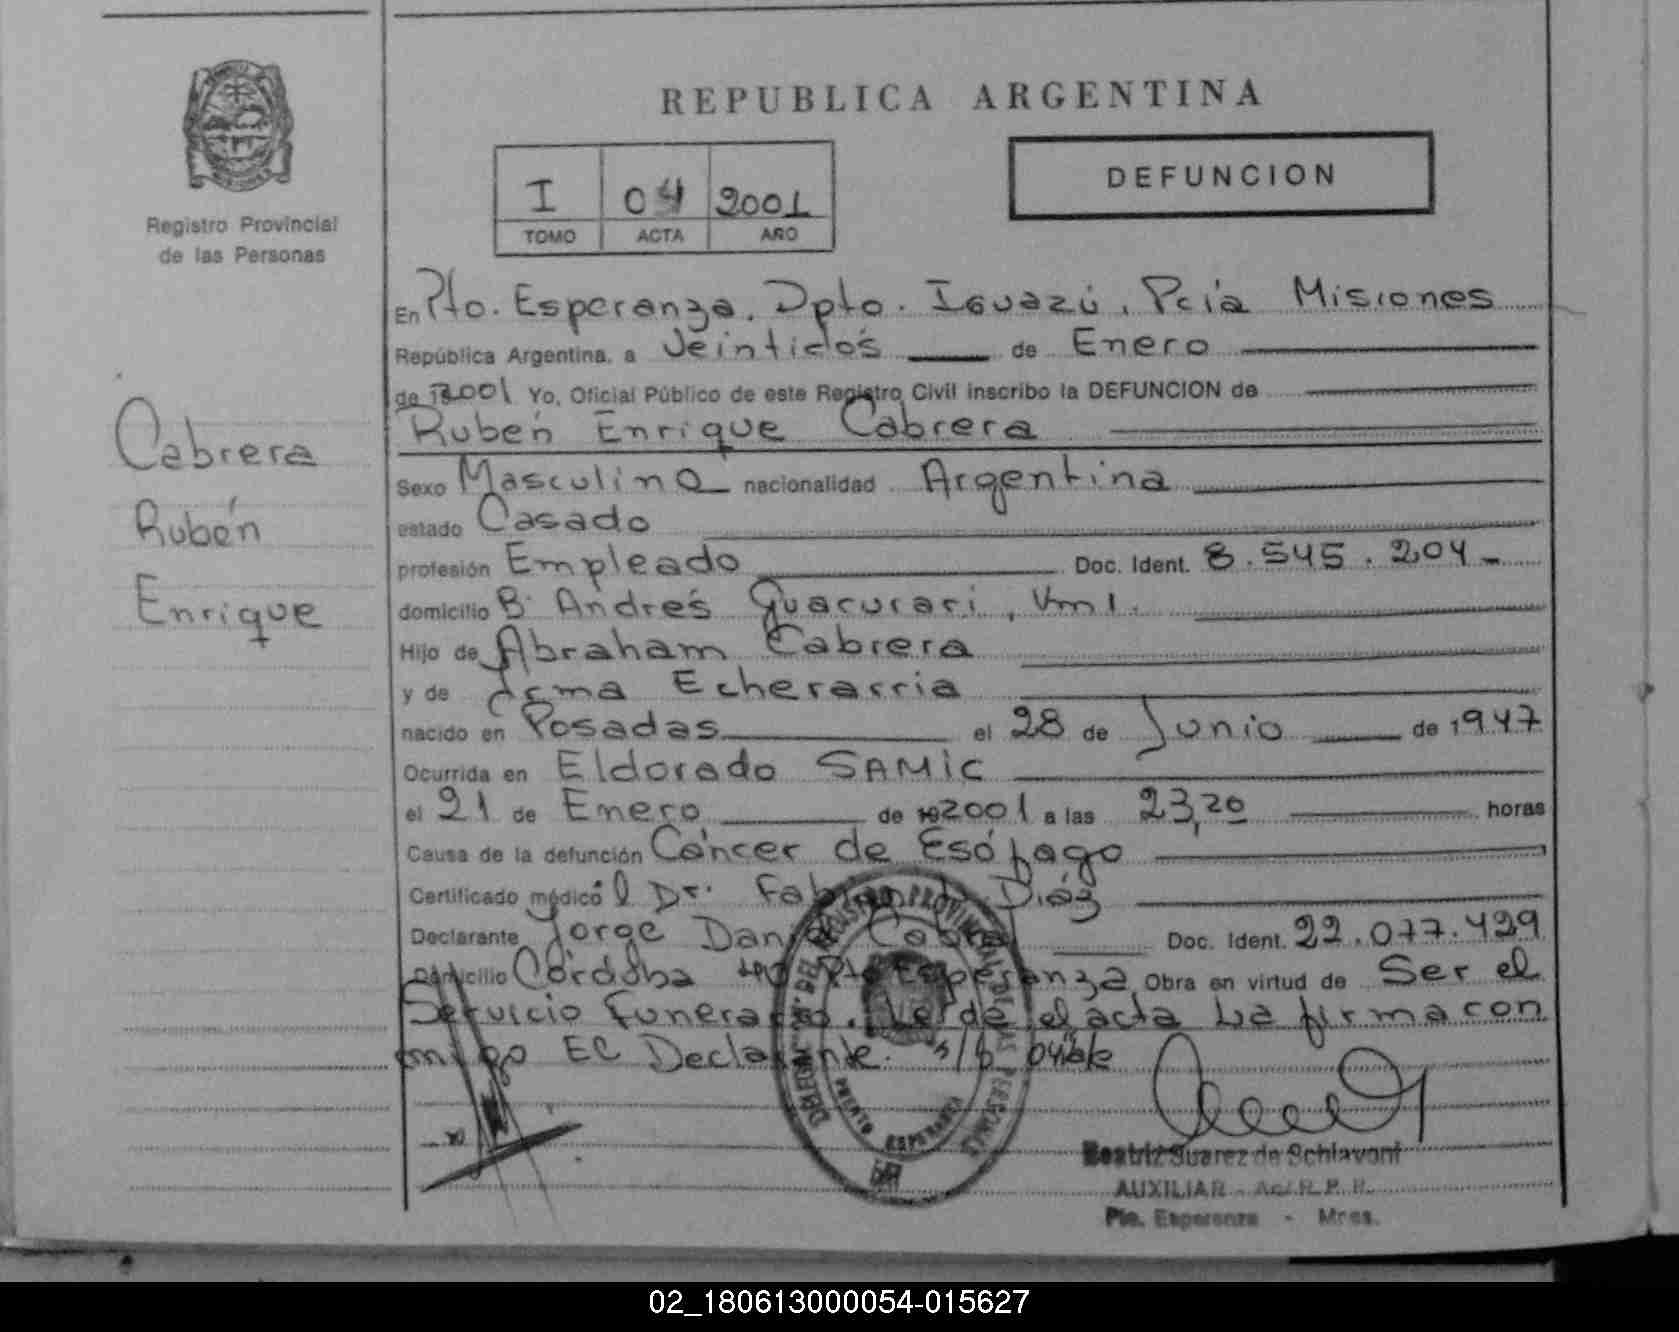 REPUBLICA ARGENTINA
DEFUNCION
I 04 2001
TOMO ACTA AÑO
Registro Provincial
de las Personas
Cabrera
Rubén
Enrique
En Pto. Esperanza, Dpto. Iguazú, Pcia Misiones
República Argentina, a Veintidós de Enero
de 2001 Yo, Oficial Público de este Registro Civil inscribo la DEFUNCION de
Rubén Enrique Cabrera
Sexo Masculino nacionalidad Argentina
estado Casado
profesión Empleado Doc. Ident. 8.545.204-
domicilio Bº Andrés Guacurari, Km 1.
Hijo de Abraham Cabrera
y de Irma Echerarria
nacido en Posadas el 28 de Junio de 1947
Ocurrida en Eldorado SAMIC
el 21 de Enero de 2001 a las 23,20 horas
Causa de la defunción Cáncer de Esófago
Certificado médico Dr. Díaz
Declarante Jorge Doc. Ident. 22.077.429
Domicilio Córdoba Pto Esperanza Obra en virtud de Ser el
Servicio Funerario. el acta La firma con
migo EC Declarante.
DELEGAC. DEL REGISTRO PROVINCIAL DE LAS PERSONAS
PUERTO ESPERANZA
Beatriz Suarez de Schiavoni
AUXILIAR - R. P. P.
Pto. Esperanza - Mnes.
02_180613000054-015627